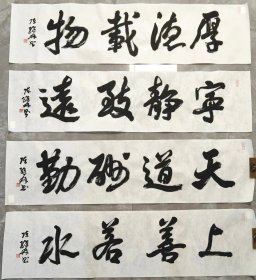 厚德载物
宁静致远
天道酬勤
上善若水